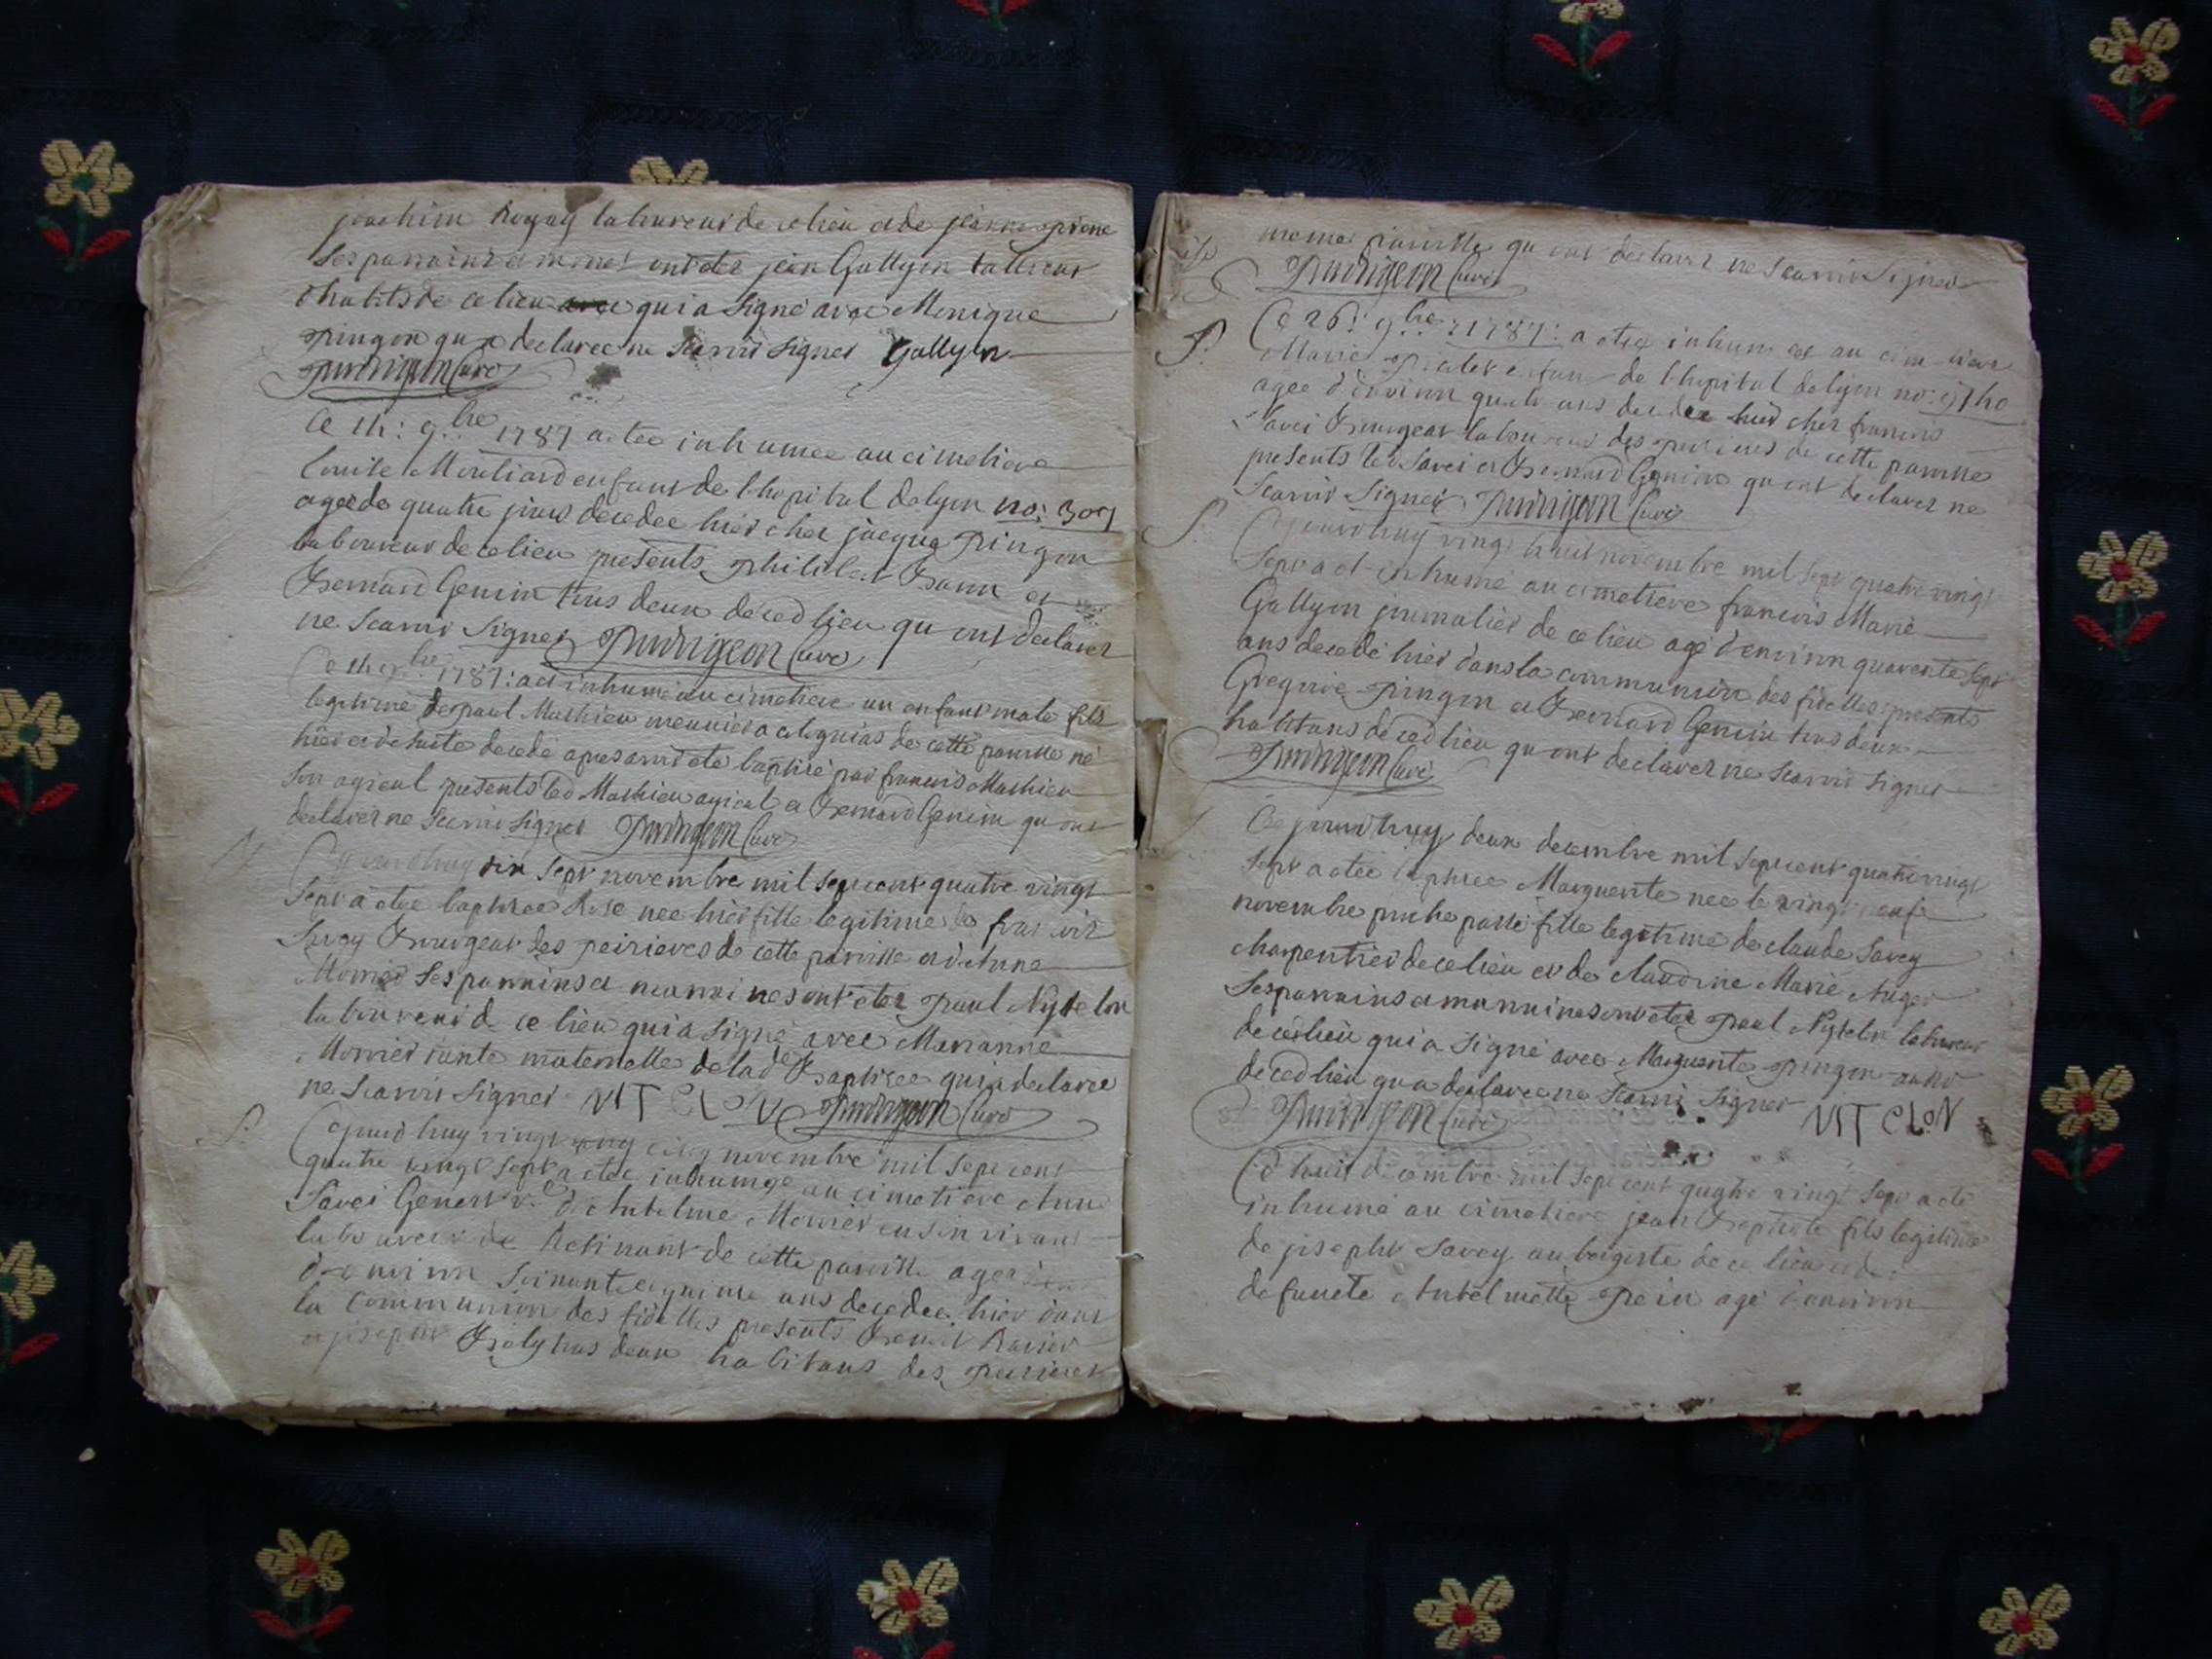 joachim Royay laboureur de ce lieu et de jeanne
Ses parrains et mones ont etes jean Gallyon tallieur
dhabits de ce lieu qui a signé avec Monique
pingon qua declaree ne scavoir signer Gallyon
curé
Ce 11: 9.bre 1787 a etee inhumee au cimetiere
Louise Mouliard enfant de l'hopital de lyon no:
agee de quatre jours decedee hier chez jacque pingon
laboureur de ce lieu presents philibert et
Bernard Genin tous deux decedlieu qu ont declarer
ne scavoir signer curé
Ce 9.bre 1787: a ete inhumé au cimetiere un enfant male fils
legitime de paul Mathieu meunier a de cette paroisse né
hier et de suite decedé apres avoir eté baptisé par francois Mathieu
son ayieul presents led Mathieu ayieul et Bernard Genin qu ont
declarer ne scavoir signer curé
Cejourdhuy dix sept novembre mil sept cent quatre vingt
sept a etee baptisee Rose nee hier fille legitime de francois
Savey Bourgeat des peirieres de cette paroisse et d'Anne
Monier Ses parrains et marraines ont eter paul Nytelon
laboureur de ce lieu qui a signé avec Marianne
Monier tante maternelle de lad Baptisee qui a declaree
ne scavoir signer NIT ELON curé
Cejourdhuy vingt cinq novembre mil sept cent
quatre vingt sept a etee inhumée au cimetiere Anne
Savei Genest v.e d'Antelme Monier en son vivant
laboureur de de cette paroisse agee
d'environ soixante et quinze ans decedee hier dans
la communion des fidelles presents Benoit
et joseph tous deux habitans des
meme paroisse qu ont declarer ne scavoir signer
curé
Ce 26: 9.bre 1787: a etee inhumee au cimetiere
Marie enfant de l'hopital de lyon no:
agee d'environ quatre ans decedee hier chez francois
Savei Bourgeat laboureur des de cette paroisse
presents led Savei et Bernard Genin qu ont declarer ne
scavoir signer curé
Cejourdhuy vingt huit novembre mil sept quatre vingt
sept a eté inhumé au cimetiere francois Marie
Gallyon journalier de ce lieu agé d'environ quarente sept
ans decedé hier dans la communion des fidelles presents
Gregoire pingon et Bernard Genin tous deux
habitans decedlieu qu ont declarer ne scavoir signer
curé
Cejourdhuy deux decembre mil sept cent quatre vingt
sept a etee baptisee Marguerite nee le vingt neuf
novembre proche passé fille legitime de claude Savey
charpentier de ce lieu et de claudine Marie Auger
Ses parrains et marraines ont eter paul Nytelon laboureur
de ce lieu qui a signé avec Marguerite pingon
decedlieu qu a declaree ne scavoir signer
curé NIT ELON
Ce huit decembre mil sept cent quatre vingt sept a eté
inhumé au cimetiere jean Baptiste fils legitime
de joseph Savey aubergiste de ce lieu et de
defuncte Antelmette agé d'environ